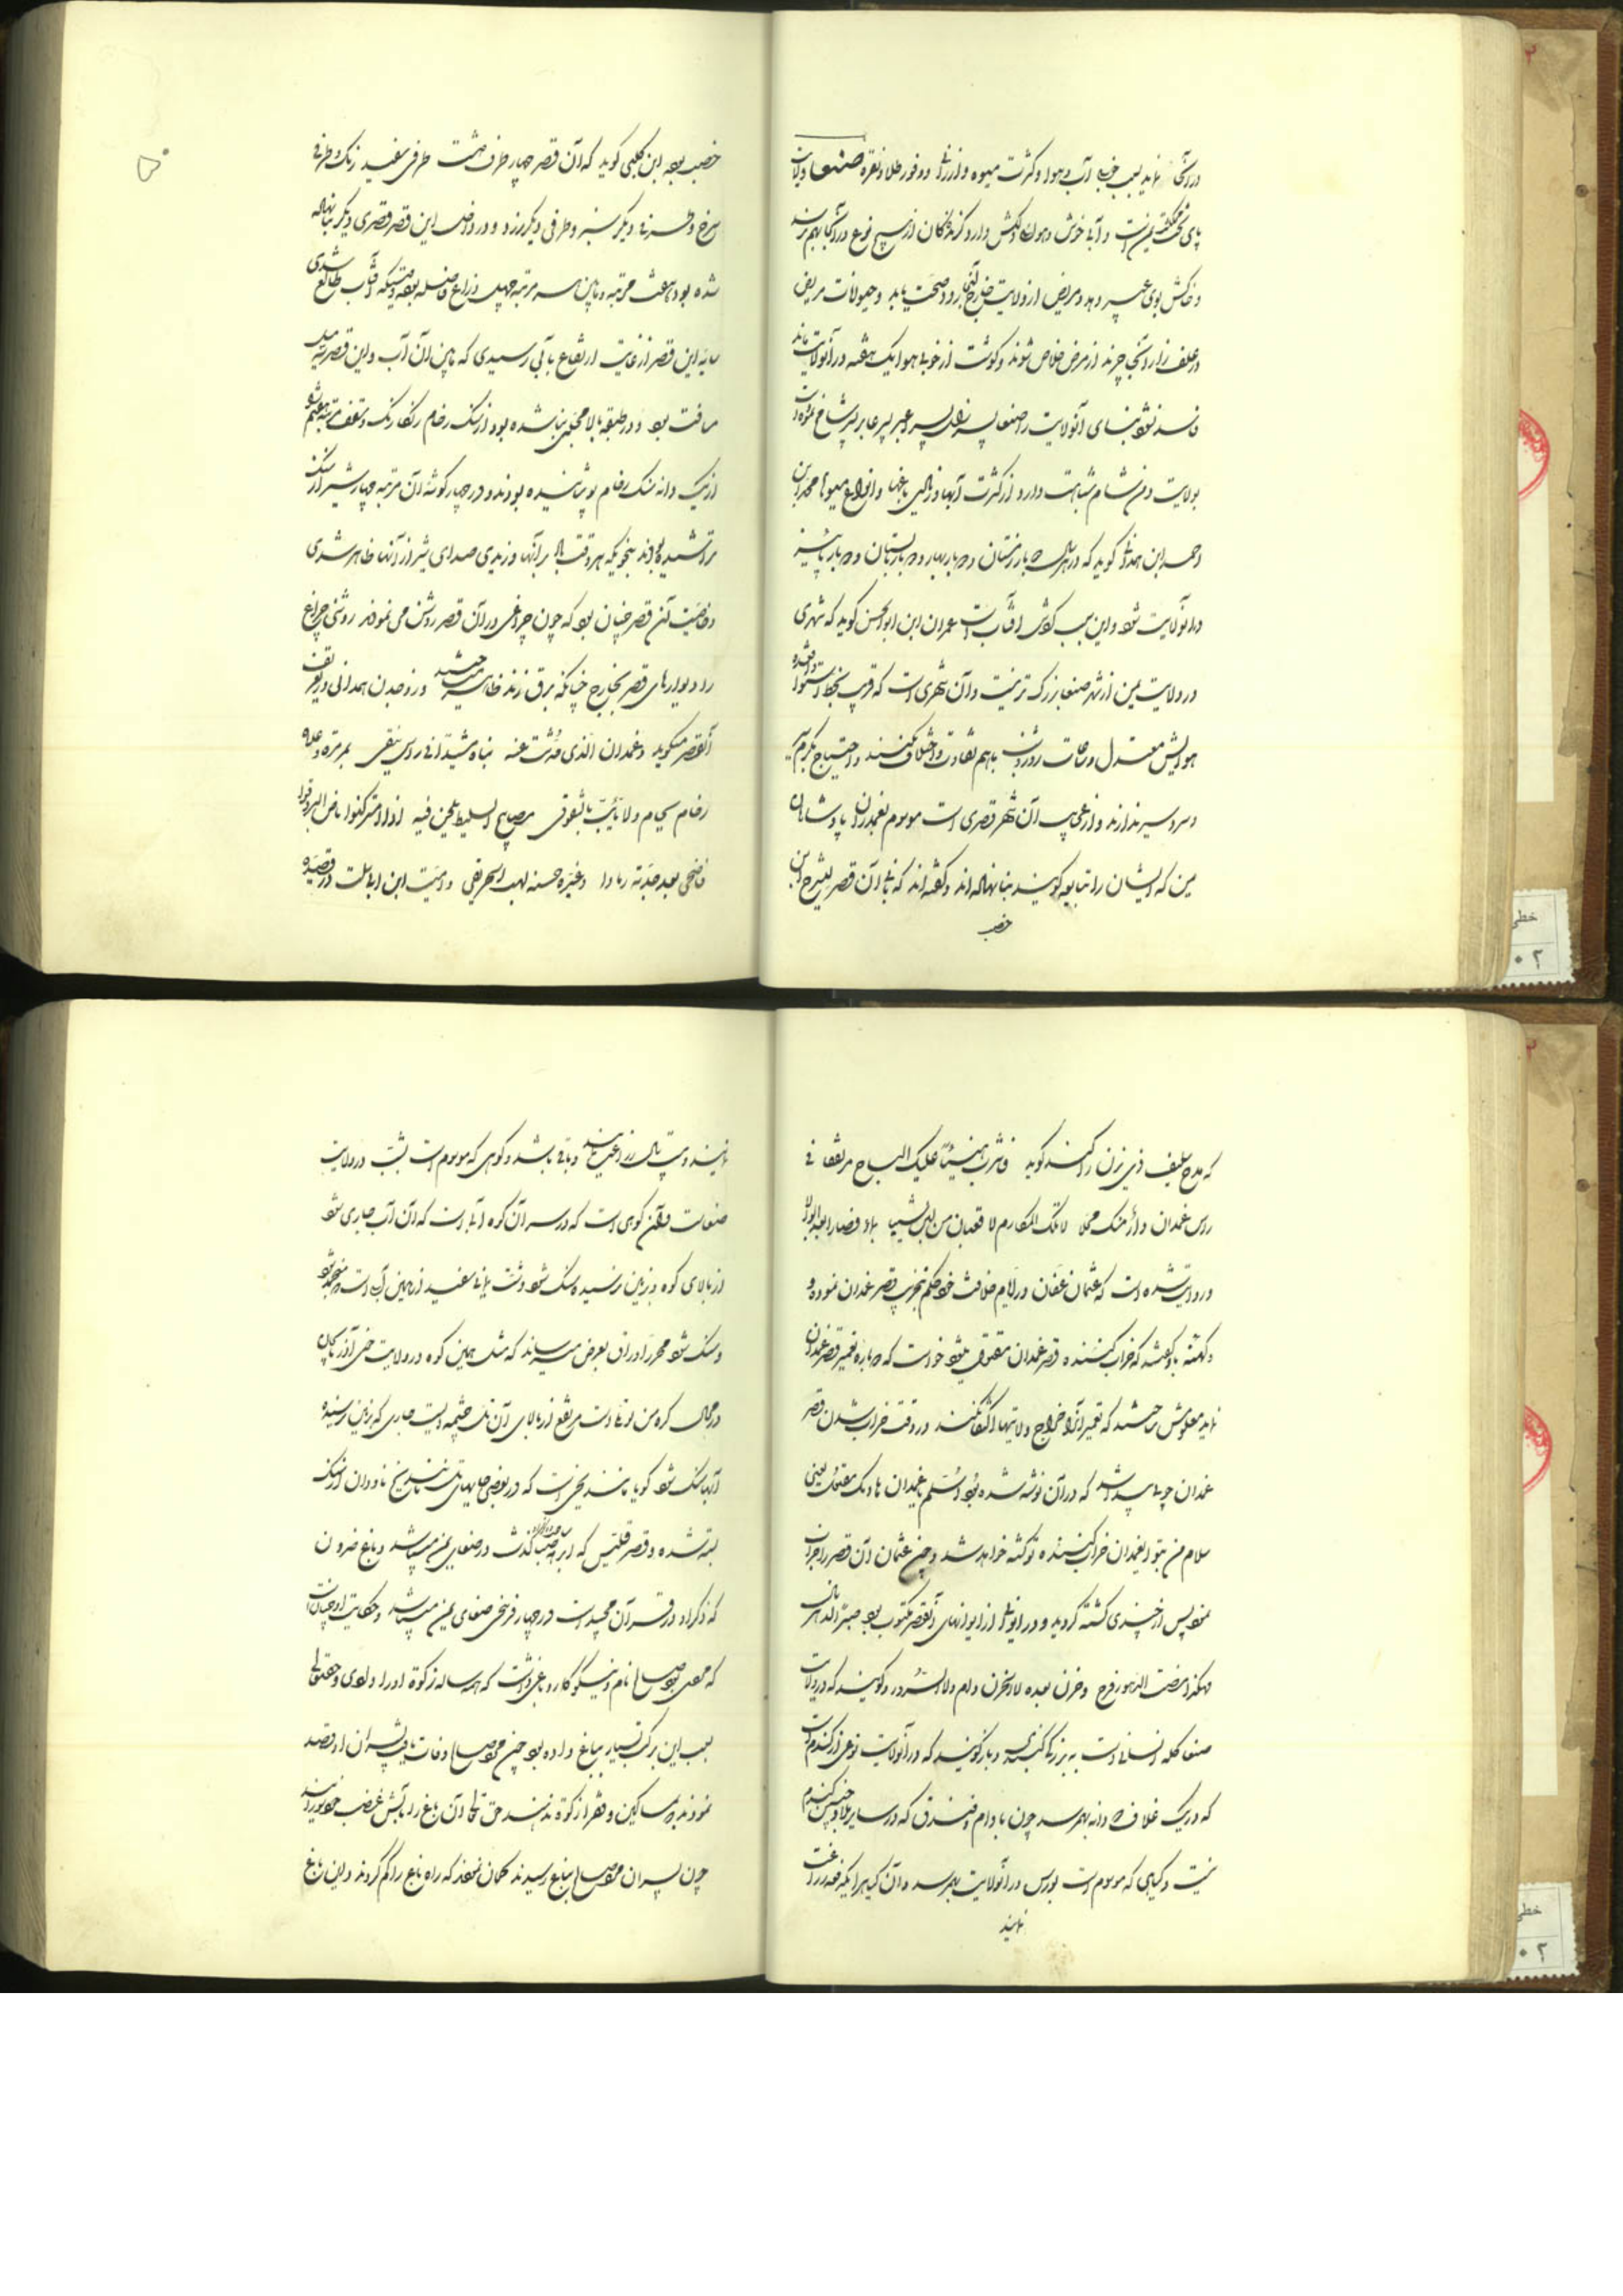 در آنجا نماید بسبب خوبی آب و هوا و کثرت میوه و ارزانی و وفور طلا و نقره صنعا ولایت
پای تخت مملکت یمن است و آبی خوش و هوای دلکش دارد و گزندگان از هیچ نوع در آنجا بهم نرسد
و خاکش بوی عبیر دهد و مریض از ولایت خارج آنجا برود صحت یابد و حیوانات مریض
در علف زار آنجا چرند از مرض خلاص شوند و گوشت از خوبی هوا یک هفته در آنولایت بماند
فاسد نشود بنای آنولایت را صنعا پسر ازال پسر عبیر پسر عابر پسر شالخ نموده است
بولایت دمشق شام مشابهت دارد از کثرت آبها و زیادتی باغها و انواع میوها محمد ابن
احمد ابن همدانی گوید که در هر سال دو بار زمستان و دو بار بهار و دو بار تابستان و دو بار پائیز
در آنولایت شود و این بسبب گردش آفتاب است عمران ابن ابوالحسن گوید که شهری
در ولایت یمن از شهر صنعا بزرگ تر نیست و آن شهری است که قریب بخط استوا واقع شده
هوایش معتدل و ساعات روز و شب با هم تفاوت و اختلاف نکنند و احتیاج بگرم سیر
و سردسیر ندارند و از عجایب آن شهر قصری است موسوم بغمدان پادشاهان
یمن که ایشان را تبابعه گویند بنا نهاده اند و گفته اند که بنای آن قصر لیشرح ابن
خصب
خصب بود ابن کلبی گوید که آن قصر چهار طرف داشت طرفی سفید رنگ و طرفی
سرخ و طرفی دیگر سبز و طرفی دیگر زرد و در داخل این قصر قصری دیگر بنا نهاده
شده بود هفت مرتبه و مابین هر مرتبه چهل ذراع فاصله بود وقتیکه آفتاب طالع شدی
سایه این قصر از غایت ارتفاع بآبی رسیدی که مابین آن آب و این قصر سه میل
مسافت بود و در طبقه بالا مجلسی بنا شده بود از سنگ رخام رنگارنگ و سقف مرتبه هفتم
از یک دانه سنگ رخام پوشانیده بودند و در چهار گوشه آن مرتبه چهار شیر از سنگ
تراشیده بودند بنحویکه هر وقت باد برآنها وزیدی صدای شیر از آنها ظاهر شدی
و خاصیت آن قصر چنان بود که چون چراغی در آن قصر روشن می نمودند روشنی چراغ
از دیوارهای قصر بخارج چنانکه برق زند ظاهر میشد و ذوجدن همدانی در تعریف
آنقصر میگوید و غمدان الذی حدثت عنه بناه مشیدا فی راس نیق بمرمرة و علاه
رخام سحام و لا یعیب بالشقوق مصابیح السلیط یلحن فیه اذا امسی کتوماض البروق
فاضحی بعد جدته رمادا و غیره حسنه لهب الحریق و امیة ابن ابی الصلت در قصیده
که مدح سیف ذی یزن را میکند گوید فاشرب هنیئا علیک التاج مرتفقا فی
راس غمدان دارا منک محلالا تلک المکارم لا قعبان من لبن شیبا بماء فصارا بعد ابوالا
و روایت شده است که عثمان عفان در ایام خلافت خود حکم بتخریب قصر غمدان نموده و
کهنه باو گفته که خراب کننده قصر غمدان مقتول میشود خواست که دوباره تعمیر قصر غمدان
نماید معلومش ساختند که تعمیر آنرا خراج ولایتها اکتفا نکند در وقت خراب شدن قصر
غمدان چوبی پیدا شد که در آن نوشته شده بود اسلم غمدان هادمک مقتول یعنی
سلام من بتو ای غمدان خراب کننده تو کشته خواهد شد و چون عثمان آن قصر را خراب
نمود پس از چندی کشته گردید و در ایوانی از ایوانهای آنقصر مکتوب بود
صنعا کله انسانی است به بزرگی گنبدی و باز گویند که در آنولایت نوعی از گندم است
که در یک غلاف دو دانه بهم رسد چون بادام و فندق که در سایر بلاد چنین گندم
نیست و گیاهی که موسوم است بورس در آنولایت بهم رسد و آن گیاه را یکدفعه زراعت
نمایند
نمایند و بیست سال زراعت نمایند و باقی باشد و کوهی که موسوم است بشب در ولایت
صنعاست و آن کوهی است که در سر آن کوه آبی است که آن آب جاری شود
از بالای کوه و بزمین نرسیده سنگ شود و شب یمانی سفید از همین آب است که منجمد شود
و سنگ شود محرر اوراق بعرض میرساند که مثل همین کوه در ولایت خوی آذربایجان
آنها سنگ شود گویا مانند یخی است که در بعضی جاها
بسته شده و قصر قلیس که ابرهه صباح گذشت در صنعای یمن میباشد و باغ ضروان
که ذکر او در قرآن مجید است در چهار فرسخی صنعای یمن میباشد و حکایت او چنان است
که مردی بود صالح نام و نیکوکار و باغی داشت که همه ساله زکوة او را دادی و حق تعالی
بسبب این برکت بسیار بباغ داده بود چون مرد صالح وفات یافت پسران او قصد
نمودند که بمساکین و فقرا زکوة ندهند حق تعالی آن باغ را بآتش غضب خود بسوزانید
چون پسران مرد صالح بباغ رسیدند گمان نمودند که راه باغ را گم کردند و این باغ
خطی
۰۲
خطی
۰۲